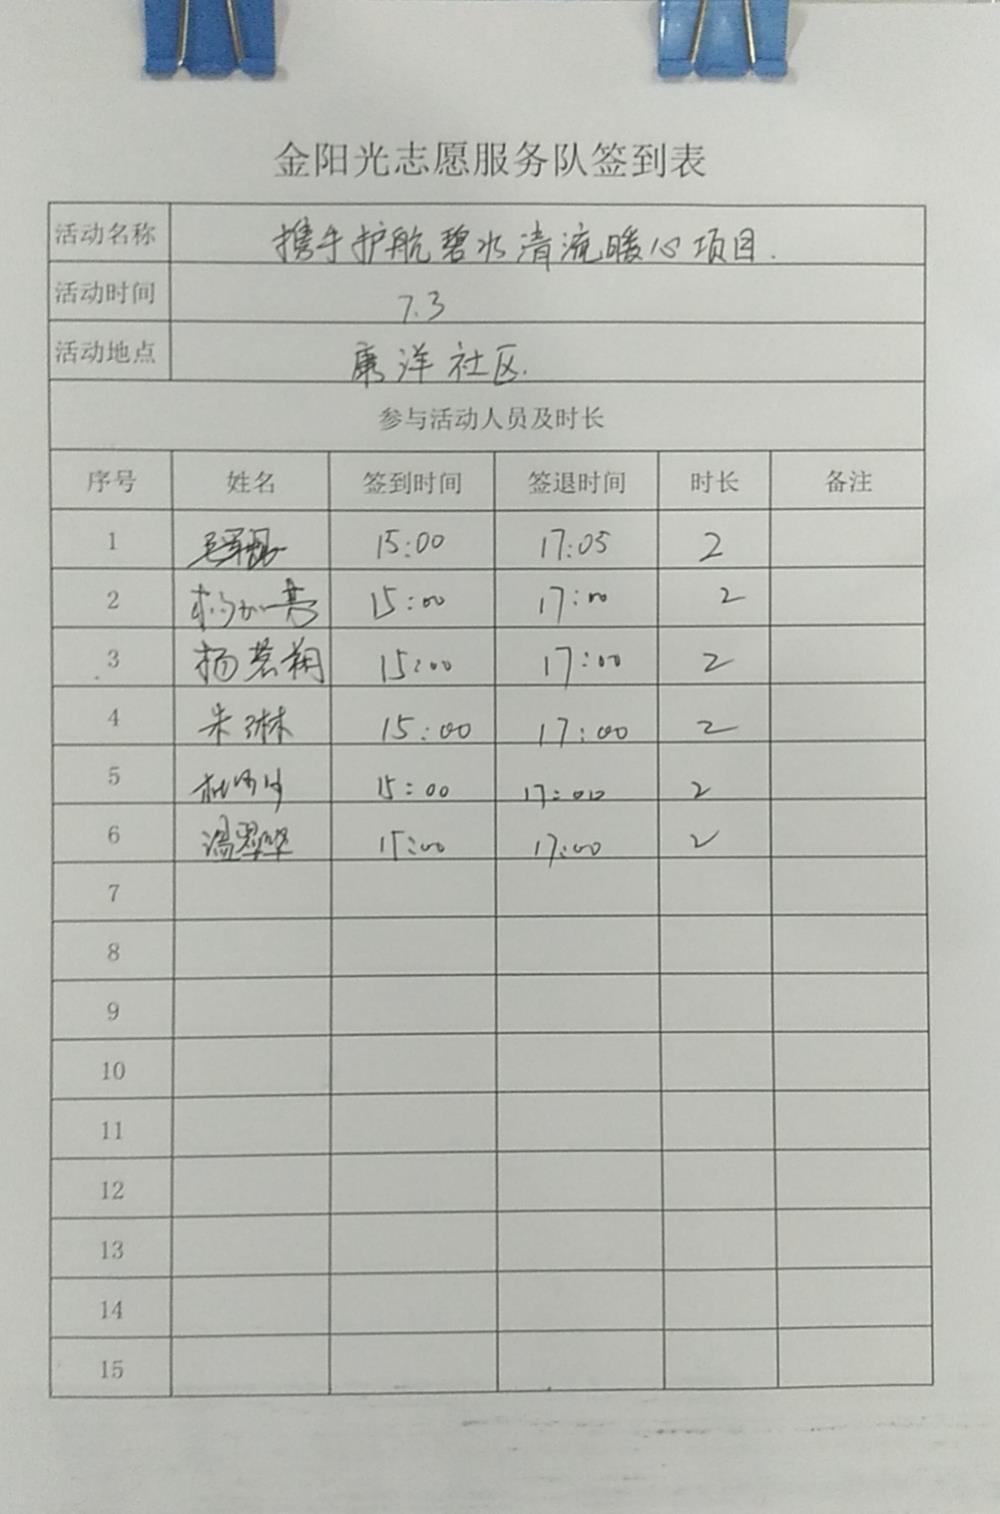 金阳光志愿服务队签到表
活动名称 携手护航碧水清流暖心项目.
活动时间 7.3
活动地点 康洋社区.
参与活动人员及时长
序号 姓名 签到时间 签退时间 时长 备注
1 15:00 17:05 2
2 15:00 17:00 2
3 杨 15:00 17:00 2
4 朱琳 15:00 17:00 2
5 15:00 17:00 2
6 15:00 17:00 2
7
8
9
10
11
12
13
14
15